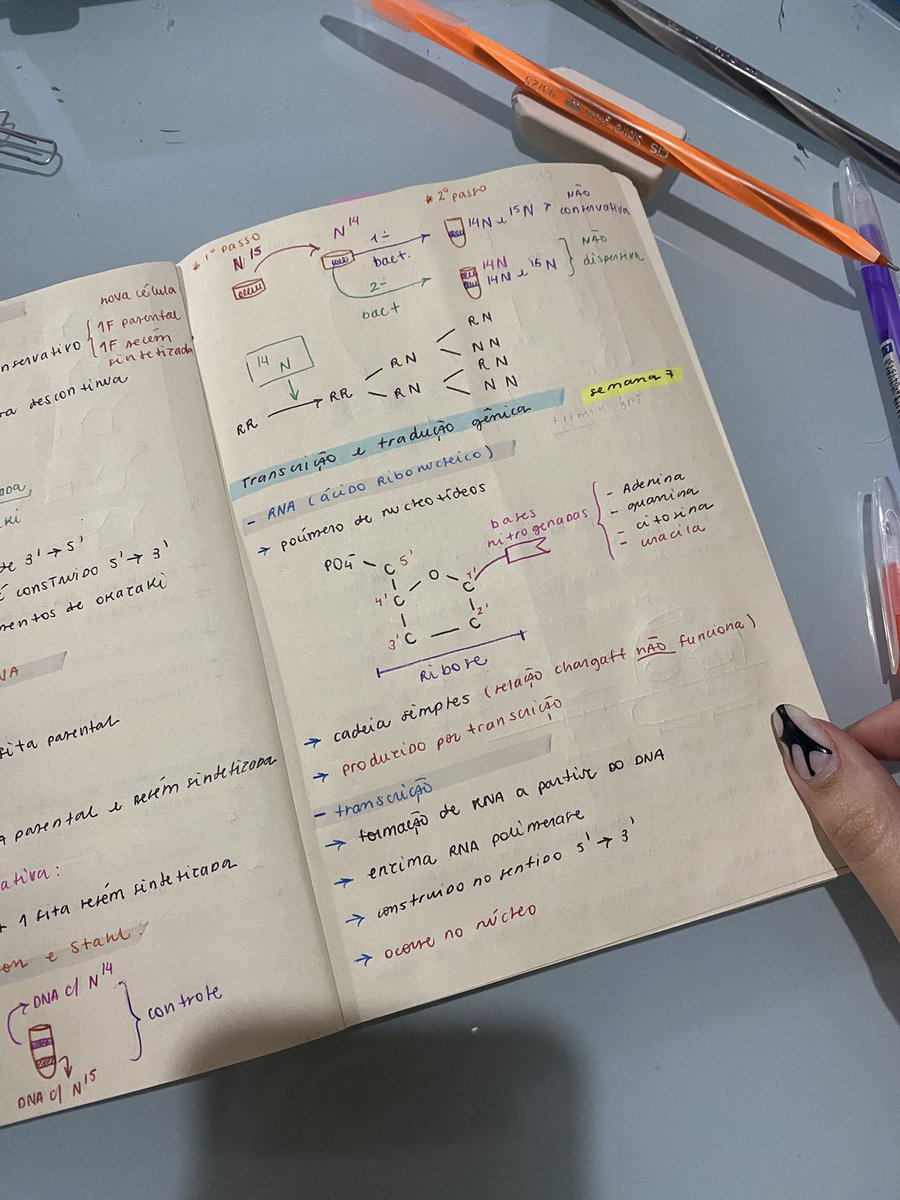 nova célula
1F parental
1F recém
sintetizada
descontínua
3' → 5'
construído 5' → 3'
de okazaki
fita parental
parental e recém sintetizada
ativa:
+ 1 fita recém sintetizada
on e Stahl:
DNA c/ N14
controle
DNA c/ N15
* 1º passo
N15
N14
* 2º passo
1ª
bact.
14N e 15N
NÃO
conservativa
2ª
bact
14N
14N e 15N
NÃO
dispersiva
14
N
RR
RR
RN
RN
RN
NN
RN
NN
semana 7
transcrição e tradução gênica
- RNA (ácido Ribonucleico)
→ polímero de nucleotídeos
PO4-
C 5'
O
C 1'
4' C
C 2'
3' C
Ribose
bases
nitrogenadas
- Adenina
- guanina
- citosina
- uracila
→ cadeia simples (relação chargaff NÃO funciona)
→ produzido por transcrição
- transcrição
→ formação de RNA a partir do DNA
→ enzima RNA polimerase
→ construído no sentido 5' → 3'
→ ocorre no núcleo
CIS